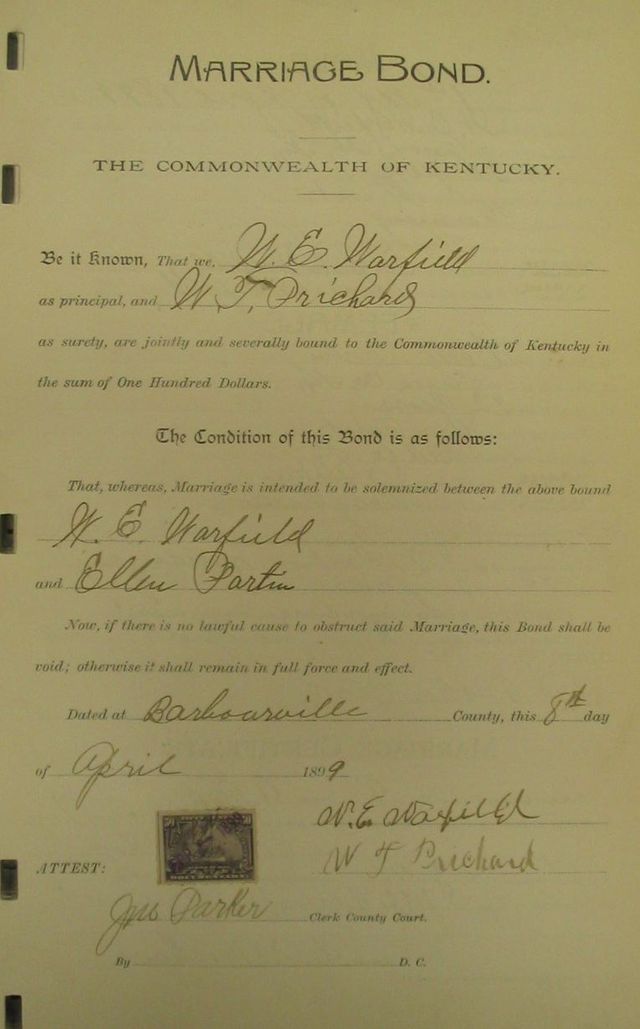 MARRIAGE BOND.
THE COMMONWEALTH OF KENTUCKY.
Be it Known, That we, W. E. Warfield
as principal, and W. T. Prichard
as surety, are jointly and severally bound to the Commonwealth of Kentucky in
the sum of One Hundred Dollars.
The Condition of this Bond is as follows:
That, whereas, Marriage is intended to be solemnized between the above bound
W. E. Warfield
and Ellen Partin
Now, if there is no lawful cause to obstruct said Marriage, this Bond shall be
void; otherwise it shall remain in full force and effect.
Dated at Barbourville County, this 8th day
of April 1899
W. E. Warfield
W T Prichard
ATTEST:
Jno Parker Clerk County Court.
By D. C.